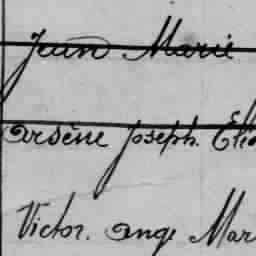 Jean Marie
Arsène Joseph. Elie
Victor. Ange Mar